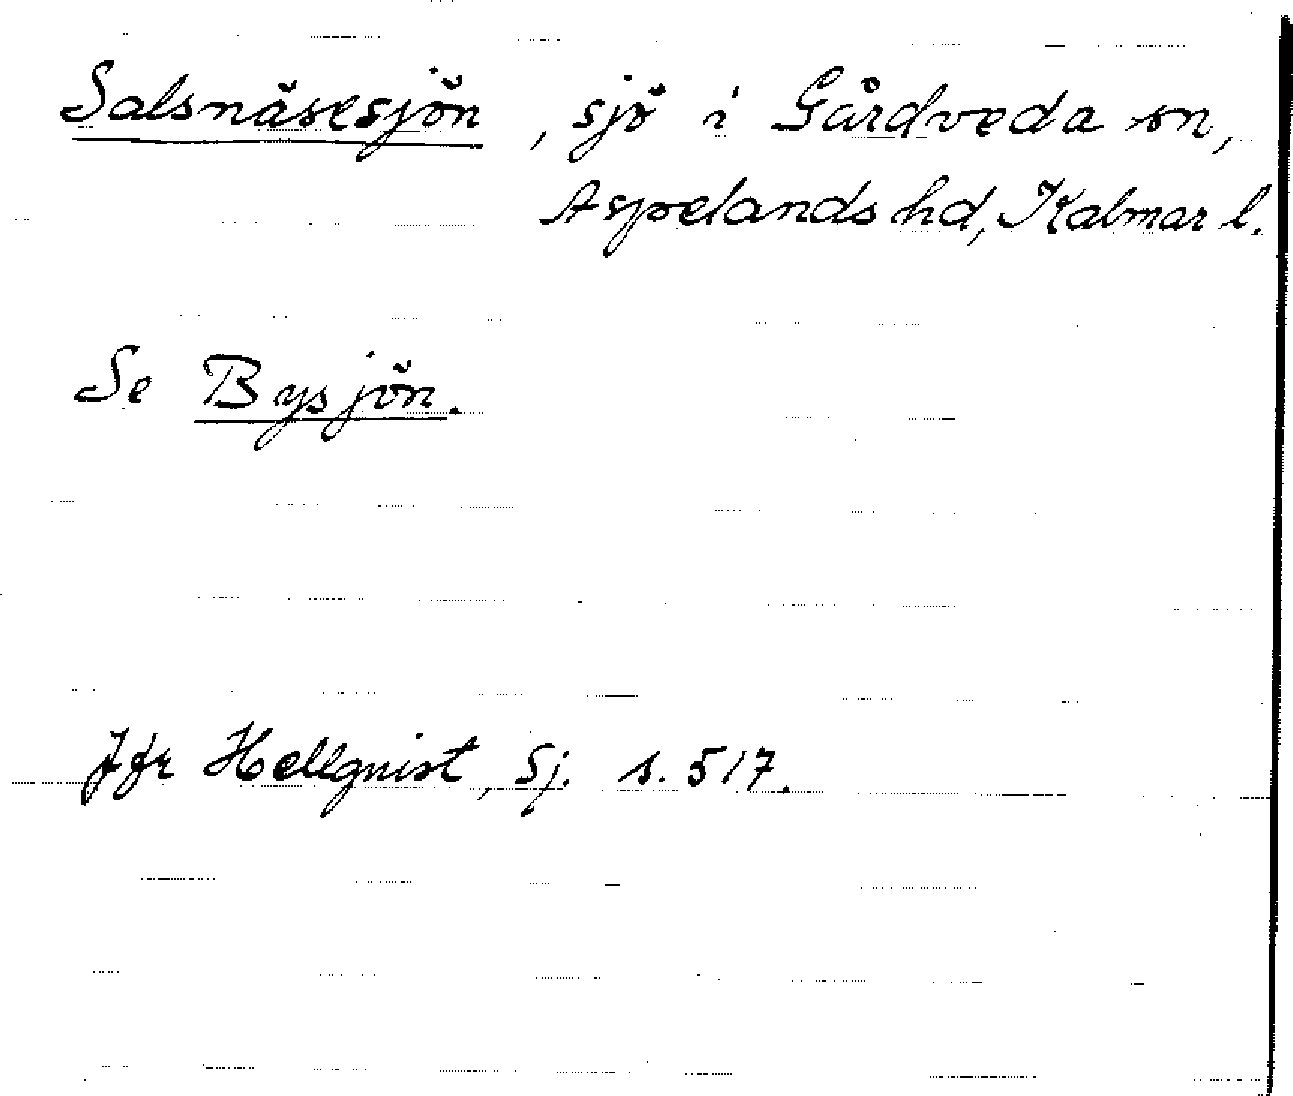 Salsnäsesjön, sjö i Gårdveda sn,
Aspelands hd, Kalmar l.
Se Bysjön.
Jfr Hellquist, Sj. s. 517.